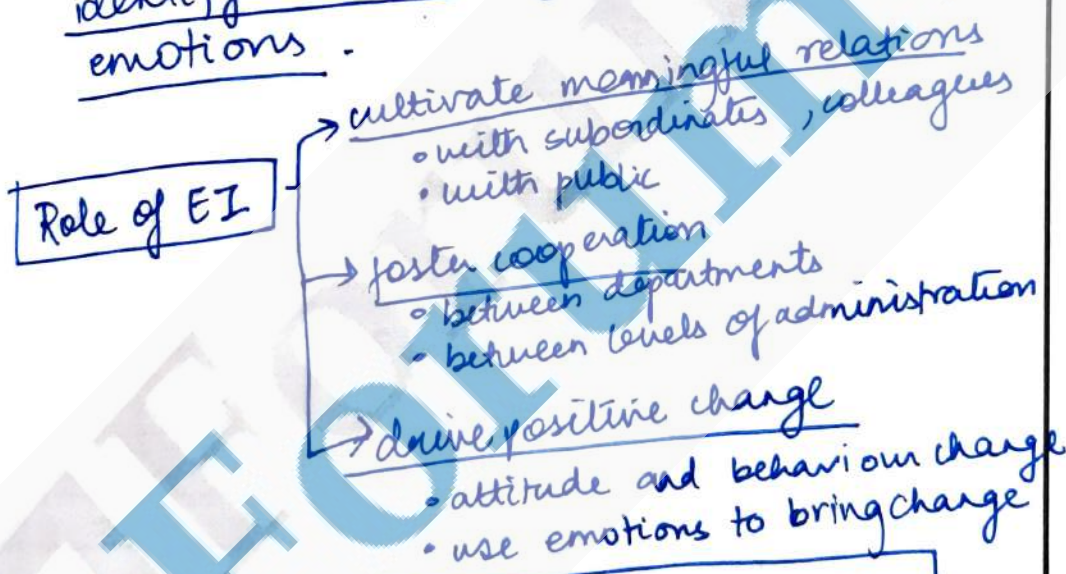 identify
emotions.
cultivate meaningful relations
• with subordinates, colleagues
• with public
Role of EI
foster cooperation
• between departments
• between levels of administration
drive positive change
• attitude and behaviour change
• use emotions to bring change
Forum